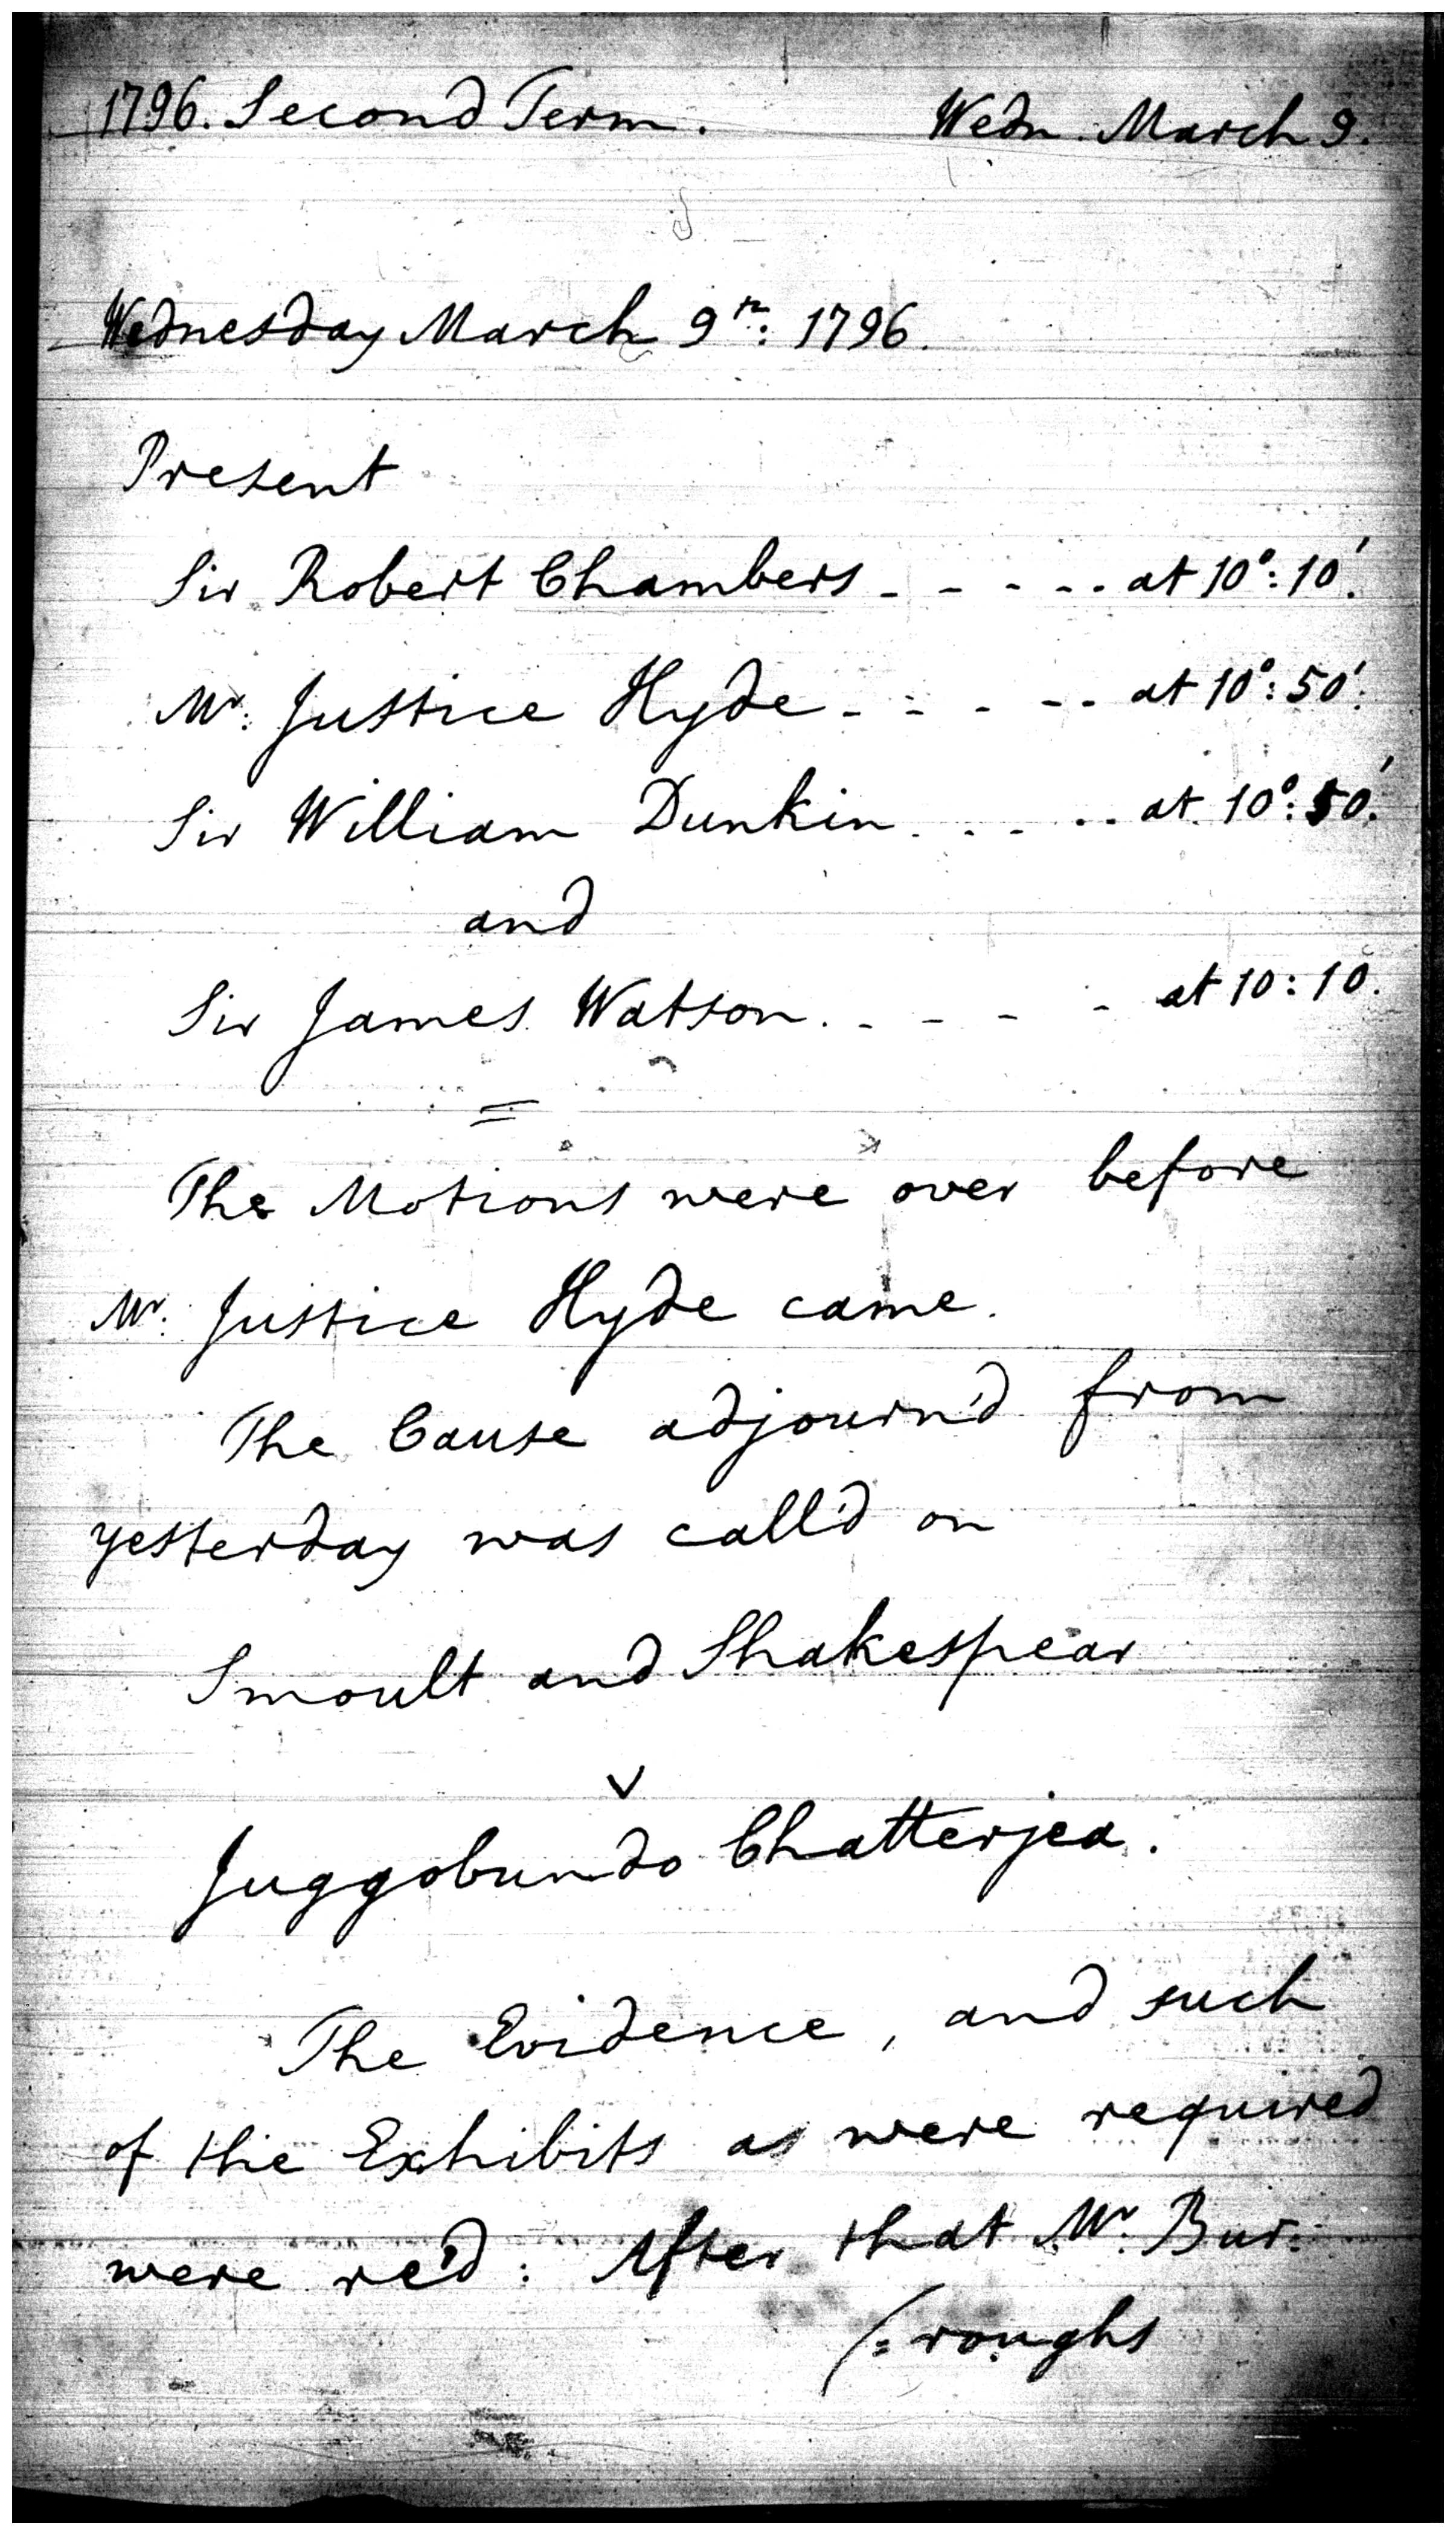 1796. Second Term. Wedn. March 9.
Wednesday March 9th: 1796.
Present
Sir Robert Chambers - - - - - at 10°: 10'.
Mr. Justice Hyde - - - - - at 10°: 50'.
Sir William Dunkin . . . . . at 10°: 50'.
and
Sir James Watson . - - - - at 10: 10.
=
The Motions were over before
Mr. Justice Hyde came.
The Cause adjourn'd from
yesterday was call'd on
Smoult and Shakespear
v
Juggobundo Chatterjea.
The Evidence, and such
of the Exhibits as were required
were re'd: After that Mr. Bur:
(=roughs